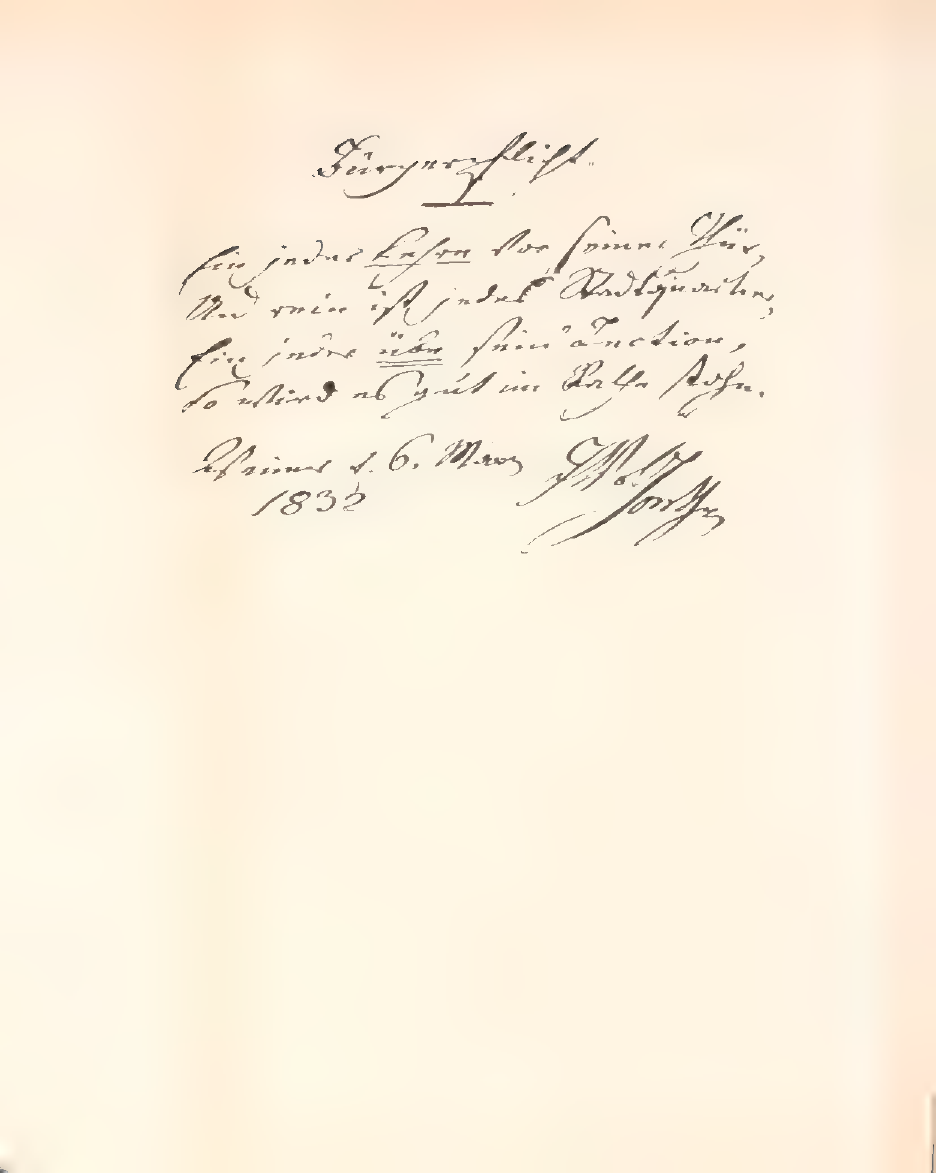 Bürgerpflicht.
Ein jeder kehre vor seiner Thür,
Und rein ist jedes Stadtquartier,
Ein jeder übe sein' Lection,
So wird es gut im Rathe stohn.
Weimar d. 6. März JWvGoethe
1832